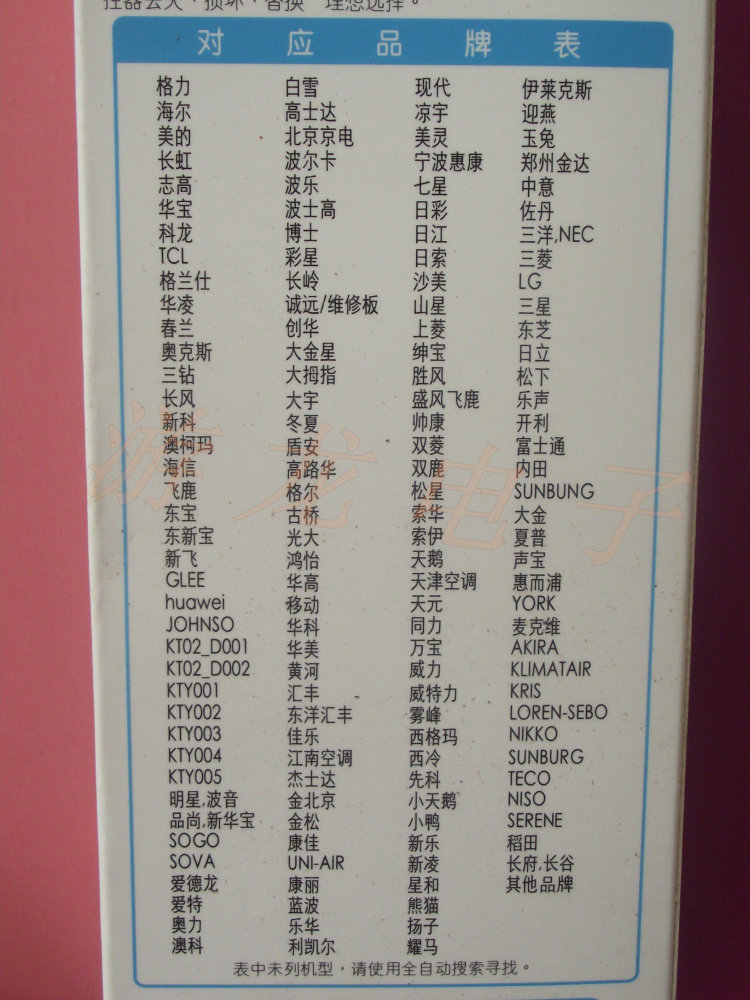 控器丢失、损坏、替换 理想选择。
对应品牌表
格力 白雪 现代 伊莱克斯
海尔 高士达 凉宇 迎燕
美的 北京京电 美灵 玉兔
长虹 波尔卡 宁波惠康 郑州金达
志高 波乐 七星 中意
华宝 波士高 日彩 佐丹
科龙 博士 日江 三洋,NEC
TCL 彩星 日索 三菱
格兰仕 长岭 沙美 LG
华凌 诚远/维修板 山星 三星
春兰 创华 上菱 东芝
奥克斯 大金星 绅宝 日立
三钻 大拇指 胜风 松下
长风 大宇 盛风飞鹿 乐声
新科 冬夏 帅康 开利
澳柯玛 盾安 双菱 富士通
海信 高路华 双鹿 内田
飞鹿 格尔 松星 SUNBUNG
东宝 古桥 索华 大金
东新宝 光大 索伊 夏普
新飞 鸿怡 天鹅 声宝
GLEE 华高 天津空调 惠而浦
huawei 移动 天元 YORK
JOHNSO 华科 同力 麦克维
KT02_D001 华美 万宝 AKIRA
KT02_D002 黄河 威力 KLIMATAIR
KTY001 汇丰 威特力 KRIS
KTY002 东洋汇丰 雾峰 LOREN-SEBO
KTY003 佳乐 西格玛 NIKKO
KTY004 江南空调 西冷 SUNBURG
KTY005 杰士达 先科 TECO
明星,波音 金北京 小天鹅 NISO
品尚,新华宝 金松 小鸭 SERENE
SOGO 康佳 新乐 稻田
SOVA UNI-AIR 新凌 长府,长谷
爱德龙 康丽 星和 其他品牌
爱特 蓝波 熊猫
奥力 乐华 扬子
澳科 利凯尔 耀马
表中未列机型，请使用全自动搜索寻找。
游龙电子